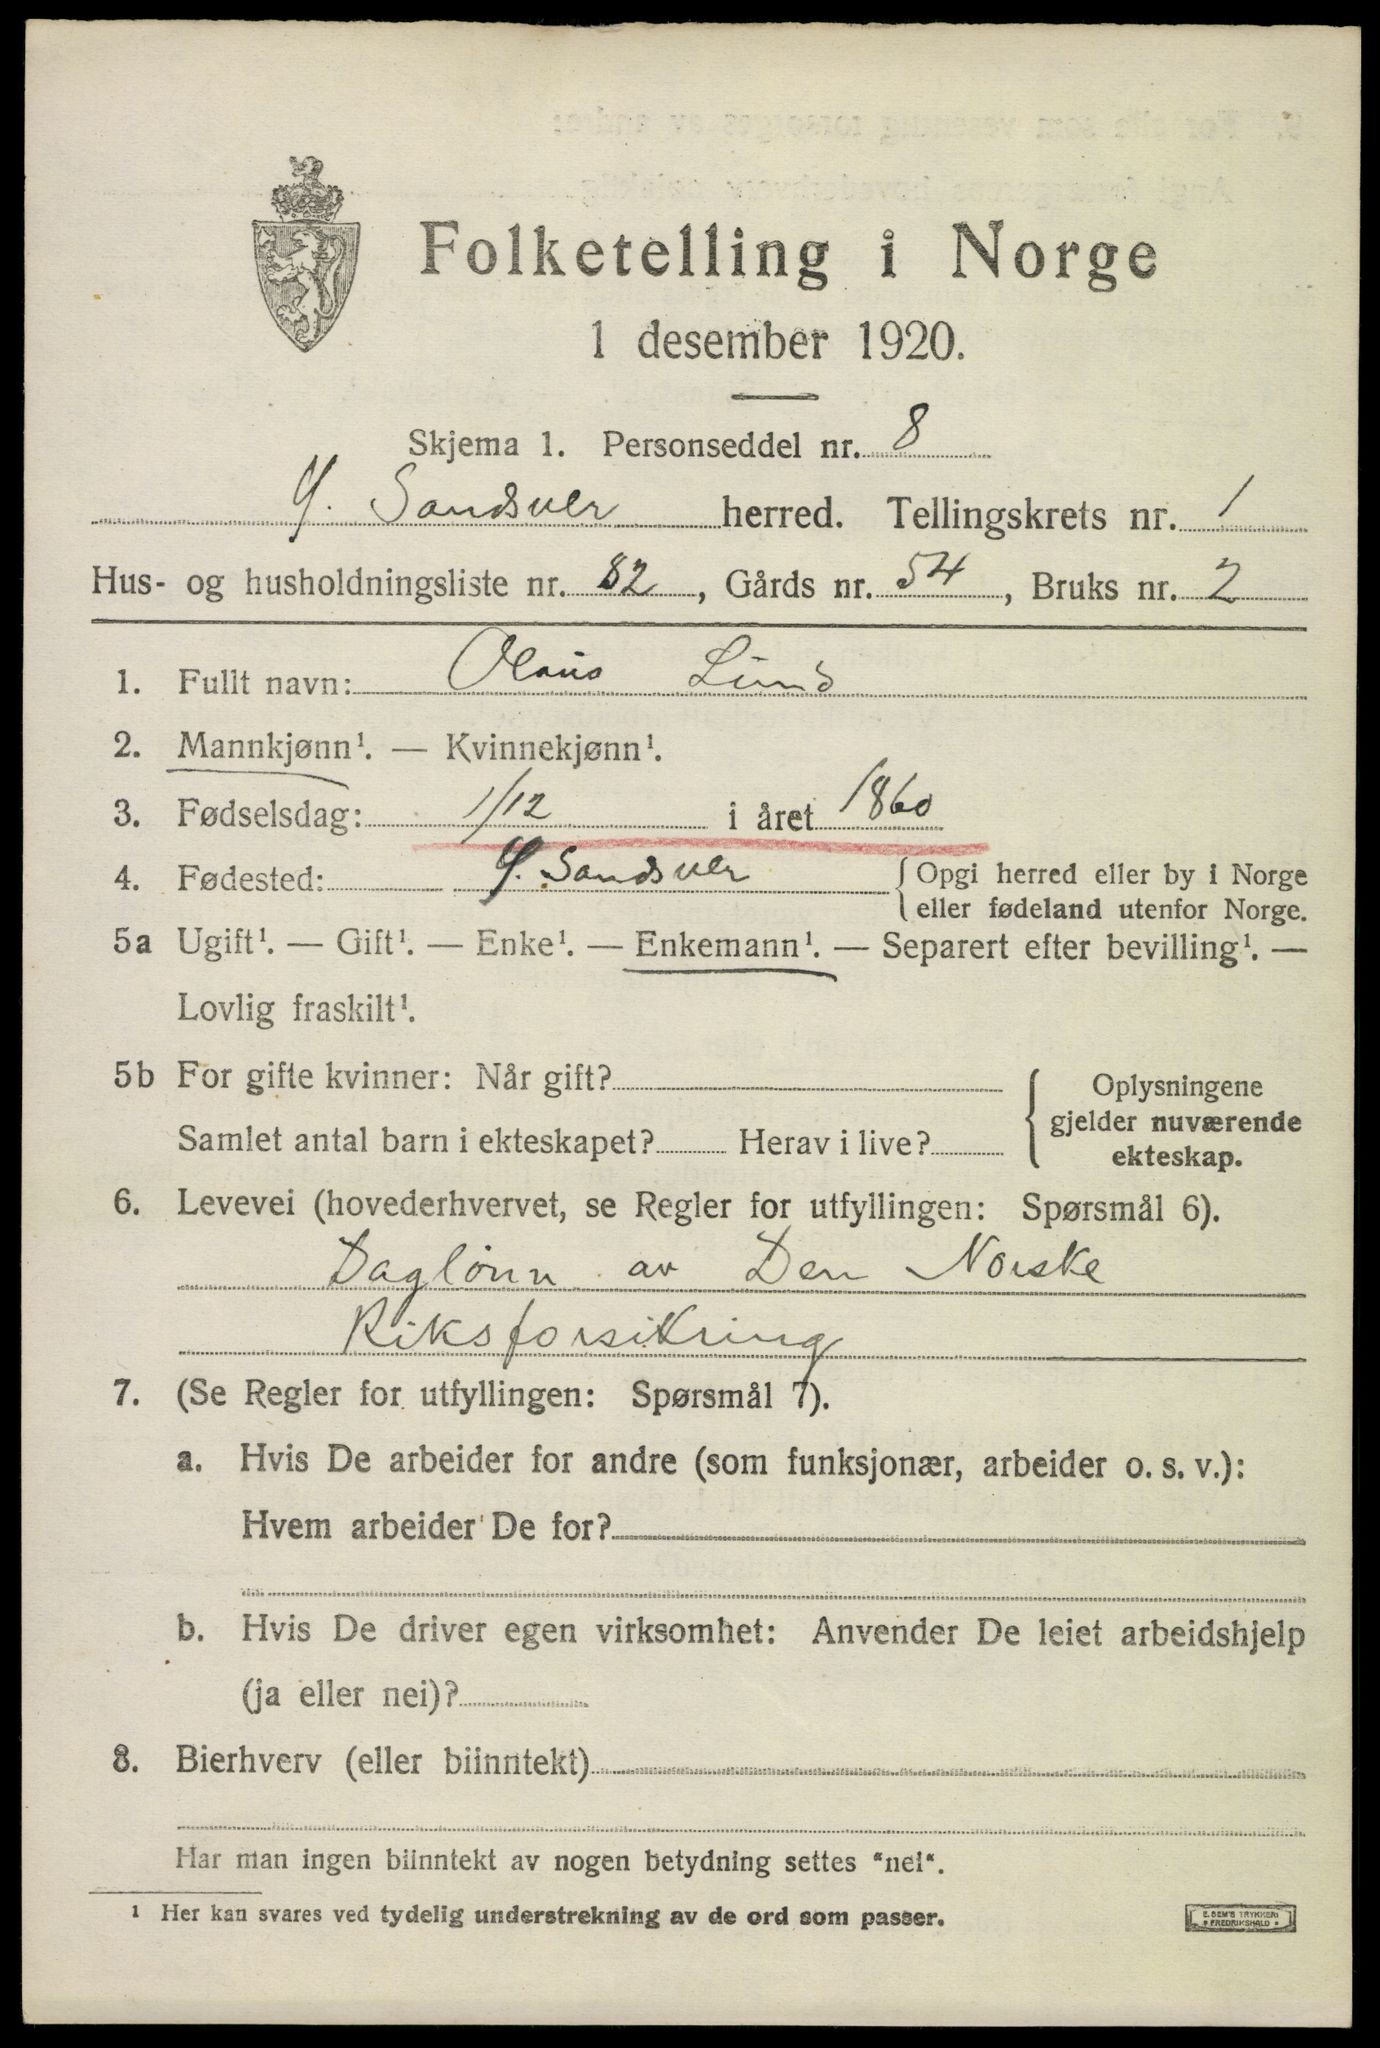 Folketelling i Norge
1 desember 1920.
Skjema 1. Personseddel nr. 8
Y. Sandsver herred. Tellingskrets nr. 1
Hus- og husholdningsliste nr. 82, Gårds nr. 54, Bruks nr. 2
1. Fullt navn: Olaus Lund
2. Mannkjønn¹. — Kvinnekjønn¹.
3. Fødselsdag: 1/12 i året 1860
4. Fødested: Y. Sandsver { Opgi herred eller by i Norge
eller fødeland utenfor Norge.
5a Ugift¹. — Gift¹. — Enke¹. — Enkemann¹. — Separert efter bevilling¹. —
Lovlig fraskilt¹.
5b For gifte kvinner: Når gift?
Samlet antal barn i ekteskapet? Herav i live?
{ Oplysningene
gjelder nuværende
ekteskap.
6. Levevei (hovederhvervet, se Regler for utfyllingen: Spørsmål 6).
Daglønn av Den Norske
Riksforsikring
7. (Se Regler for utfyllingen: Spørsmål 7).
a. Hvis De arbeider for andre (som funksjonær, arbeider o. s. v.):
Hvem arbeider De for?
b. Hvis De driver egen virksomhet: Anvender De leiet arbeidshjelp
(ja eller nei)?
8. Bierhverv (eller biinntekt)
Har man ingen biinntekt av nogen betydning settes "nei".
¹ Her kan svares ved tydelig understrekning av de ord som passer.
E. SEM'S TRYKKERI
• FREDRIKSHALD •